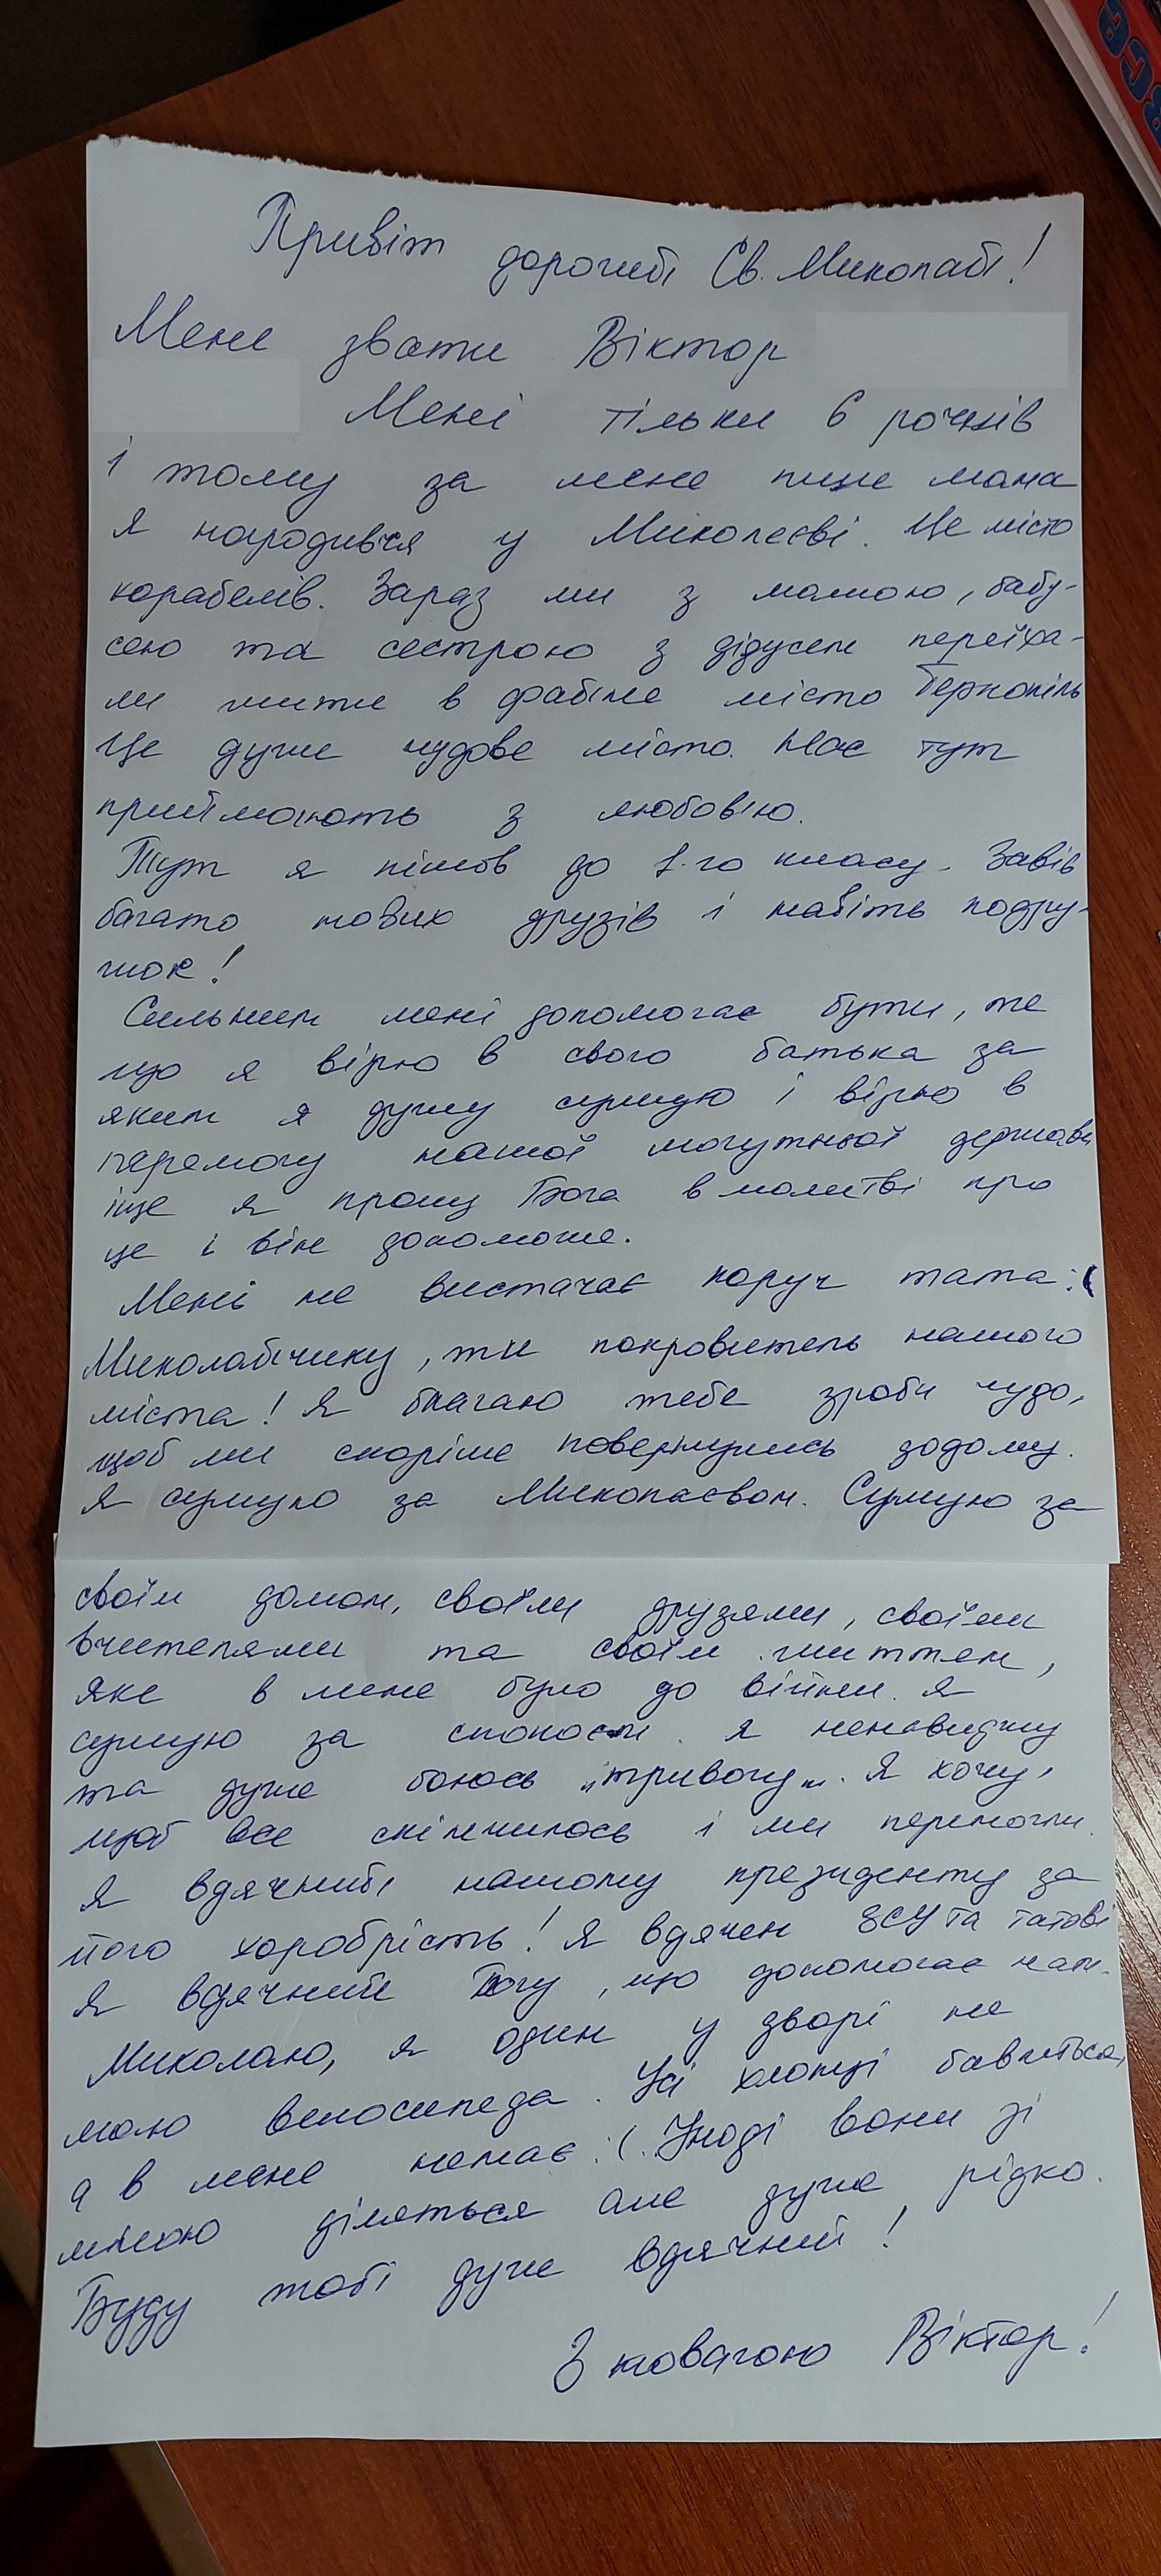 Привіт дорогий Св. Миколай!
Мене звати Віктор
Мені тільки 6 рочків
і тому за мене пише мама
Я народився у Миколаєві. Це місто
корабелів. Зараз ми з мамою, бабу-
сею та сестрою з дідусем переїха-
ли жити в файне місто Тернопіль
Це дуже чудове місто. Нас тут
приймають з любов'ю.
Тут я пішов до 1-го класу. Завів
багато нових друзів і навіть подру-
жок!
Сильним мені допомагає бути, те
що я вірю в свого батька за
яким я дужу сумую і вірю в
перемогу нашої могутньої держави
іще я прошу Бога в молитві про
це і він допоможе.
Мені не вистачає поруч тата :(
Миколайчику, ти покровитель нашого
міста! Я благаю тебе зроби чудо,
щоб ми скоріше повернулись додому.
Я сумую за Миколаєвом. Сумую за
своїм домом, своїми друзями, своїми
вчителями та своїм життям,
яке в мене було до війни. Я
сумую за спокоєм. Я ненавиджу
та дуже боюсь „тривогу„. Я хочу,
щоб все скінчилось і ми перемогли.
Я вдячний нашому президенту за
його хоробрість! Я вдячен ЗСУ та татові
Я вдячний Богу, що допомагає нам.
Миколаю, я один у дворі не
маю велосипеда. Усі хлопці бавиться,
а в мене немає :(. Іноді вони зі
мною діляться але дуже рідко.
Буду тобі дуже вдячний!
З повагою Віктор!
ВСЕ